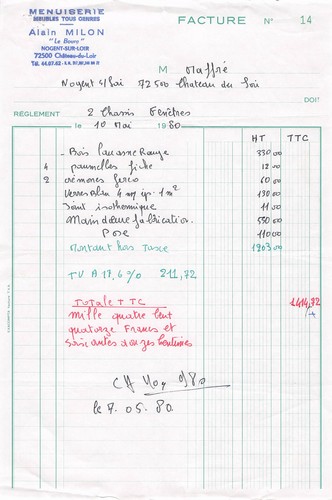 MENUISERIE
MEUBLES TOUS GENRES
Alain MILON
"Le Bourg"
NOGENT-SUR-LOIR
72500 Château-du-Loir
FACTURE N° 14
M Maffré
Nogent s/Loir 72500 Chateau du Loir
DOIT
2 Chassis Fenêtres
RÈGLEMENT
le 10 Mai 1980
HT TTC
Bois Rouge 330 00
4 paumelles fiche 12 00
2 cremones ferco 60 00
Verres 4 m/m ep. 1 m² 130 00
Joint isothermique 11 00
Main d'œuvre fabrication 550 00
Pose 110 00
Montant hors Taxe 1203 00
TVA 17,6 % 211,72
Totale TTC 1414,72
Mille quatre Cent
quatorze Francs et
soixantes douzes Centimes
le 7. 05. 80.